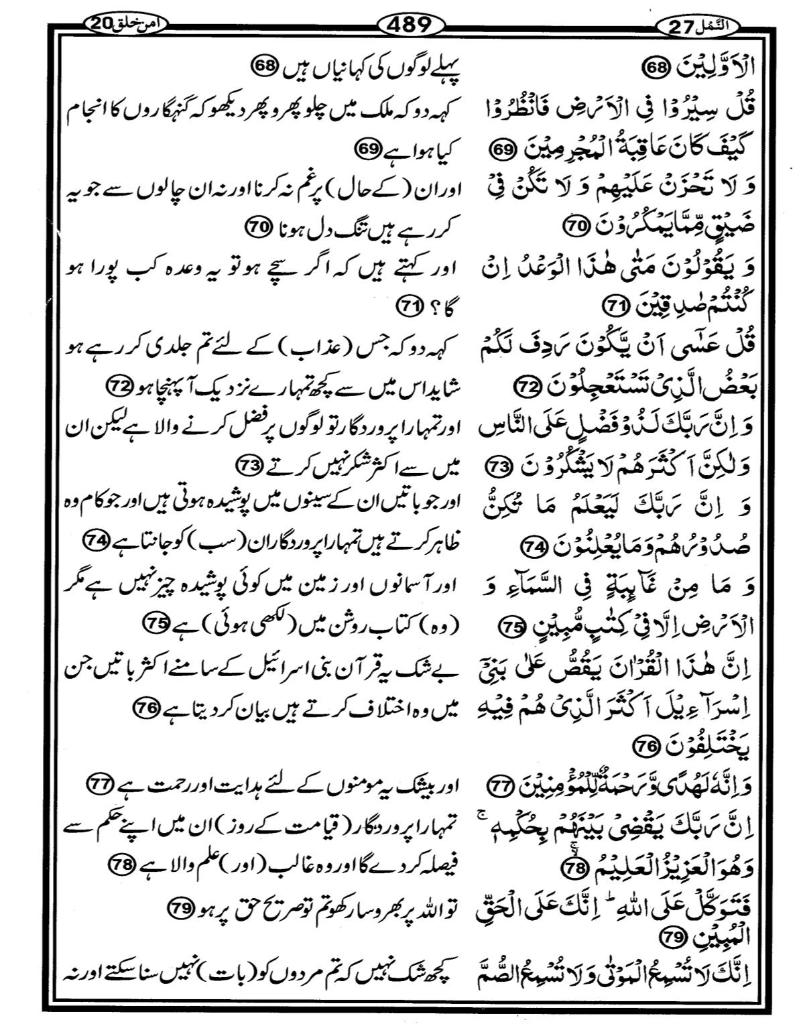 النَّمْل 27
489
امن خلق 20
الْاَوَّلِيْنَ 68
قُلْ سِيْرُوْا فِى الْاَرْضِ فَانْظُرُوْا
كَيْفَ كَانَ عَاقِبَةُ الْمُجْرِمِيْنَ 69
وَ لَا تَحْزَنْ عَلَيْهِمْ وَ لَا تَكُنْ فِىْ
ضَيْقٍ مِّمَّا يَمْكُرُوْنَ 70
وَ يَقُوْلُوْنَ مَتٰى هٰذَا الْوَعْدُ اِنْ
كُنْتُمْ صٰدِقِيْنَ 71
قُلْ عَسٰٓى اَنْ يَّكُوْنَ رَدِفَ لَكُمْ
بَعْضُ الَّذِىْ تَسْتَعْجِلُوْنَ 72
وَ اِنَّ رَبَّكَ لَذُوْ فَضْلٍ عَلَى النَّاسِ
وَ لٰكِنَّ اَكْثَرَهُمْ لَا يَشْكُرُوْنَ 73
وَ اِنَّ رَبَّكَ لَيَعْلَمُ مَا تُكِنُّ
صُدُوْرُهُمْ وَمَا يُعْلِنُوْنَ 74
وَ مَا مِنْ غَآىِٕبَةٍ فِى السَّمَآءِ وَ
الْاَرْضِ اِلَّا فِىْ كِتٰبٍ مُّبِيْنٍ 75
اِنَّ هٰذَا الْقُرْاٰنَ يَقُصُّ عَلٰى بَنِىْٓ
اِسْرَآءِيْلَ اَكْثَرَ الَّذِىْ هُمْ فِيْهِ
يَخْتَلِفُوْنَ 76
وَ اِنَّهٗ لَهُدًى وَّ رَحْمَةٌ لِّلْمُؤْمِنِيْنَ 77
اِنَّ رَبَّكَ يَقْضِىْ بَيْنَهُمْ بِحُكْمِهٖ ۚ
وَهُوَ الْعَزِيْزُ الْعَلِيْمُ ۚ 78
فَتَوَكَّلْ عَلَى اللّٰهِ ؕ اِنَّكَ عَلَى الْحَقِّ
الْمُبِيْنِ 79
اِنَّكَ لَا تُسْمِعُ الْمَوْتٰى وَ لَا تُسْمِعُ الصُّمَّ
پہلے لوگوں کی کہانیاں ہیں 68
کہہ دو کہ ملک میں چلو پھرو پھر دیکھو کہ گنہگاروں کا انجام
کیا ہوا ہے 69
اور ان (کے حال) پر غم نہ کرنا اور نہ ان چالوں سے جو یہ
کر رہے ہیں تنگ دل ہونا 70
اور کہتے ہیں کہ اگر سچے ہو تو یہ وعدہ کب پورا ہو
گا؟ 71
کہہ دو کہ جس (عذاب) کے لئے تم جلدی کر رہے ہو
شاید اس میں سے کچھ تمہارے نزدیک آ پہنچا ہو 72
اور تمہارا پروردگار تو لوگوں پر فضل کرنے والا ہے لیکن ان
میں سے اکثر شکر نہیں کرتے 73
اور جو باتیں ان کے سینوں میں پوشیدہ ہوتی ہیں اور جو کام وہ
ظاہر کرتے ہیں تمہارا پروردگار ان (سب) کو جانتا ہے 74
اور آسمانوں اور زمین میں کوئی پوشیدہ چیز نہیں ہے مگر
(وہ) کتاب روشن میں (لکھی ہوئی) ہے 75
بے شک یہ قرآن بنی اسرائیل کے سامنے اکثر باتیں جن
میں وہ اختلاف کرتے ہیں بیان کر دیتا ہے 76
اور بیشک یہ مومنوں کے لئے ہدایت اور رحمت ہے 77
تمہارا پروردگار (قیامت کے روز) ان میں اپنے حکم سے
فیصلہ کر دے گا اور وہ غالب (اور) علم والا ہے 78
تو اللہ پر بھروسا رکھو تم تو صریح حق پر ہو 79
کچھ شک نہیں کہ تم مردوں کو (بات) نہیں سنا سکتے اور نہ